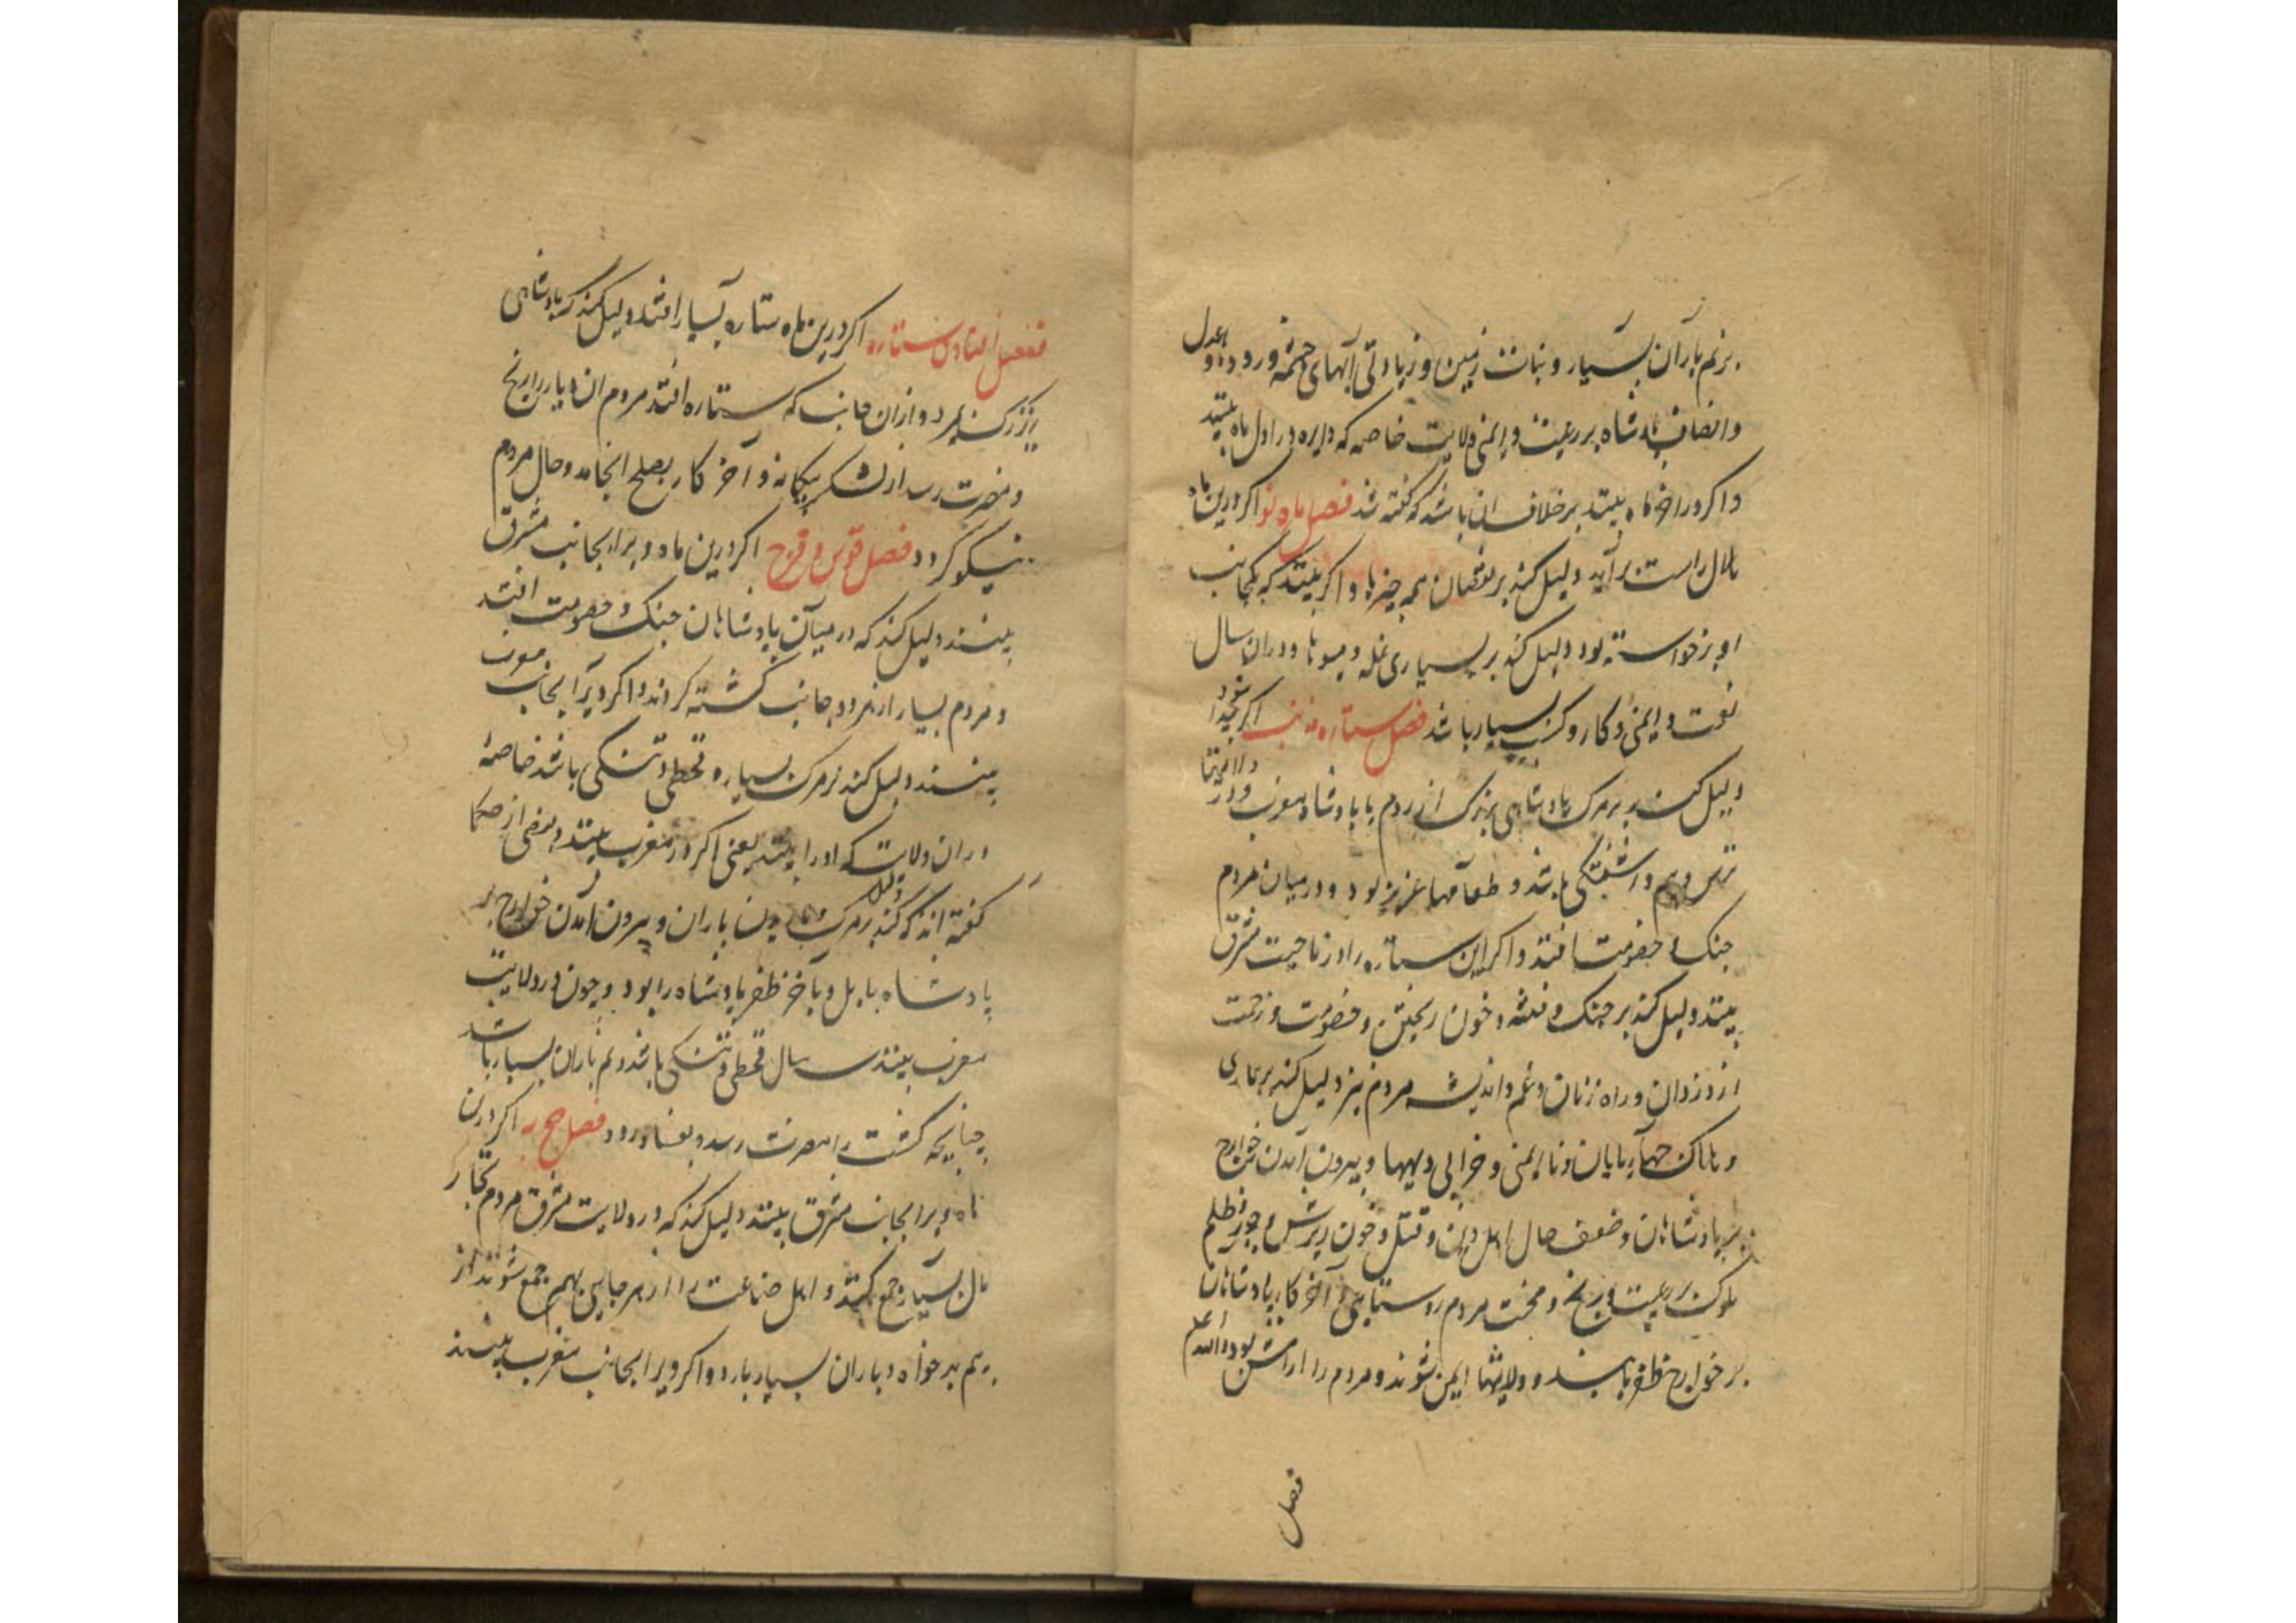 بر نم باران بسیار و نبات زمین و زیادتی آبهای چشمه و رود و عدل
و انصاف پادشاه بر رعیت و ایمنی ولایت خاصه که دایره در اول ماه بینند
و اکر در اخر ماه بینند بر خلاف ان باشد که کفته شد فصل ماه نو اکر درین ماه
هلال راست برآید دلیل کند بر نقصان همه چیزها و اکر بینند که یکجانب
او برخواسته بود دلیل کند بر بسیاری غله و میوها و دران سال
نعمت و ایمنی و کار و کسب بسیار باشد فصل ستاره ذو ذنب اکر
دلیل کند بر مرک پادشاهی بزرک از روم یا پادشاه مغرب و در ولایتها
ترس و بیم و اشفتکی باشد و طعامها عزیز بود و در میان مردم
جنک و خصومت افتد و اکر این ستاره را در ناحیت مشرق
بینند دلیل کند بر جنک و فتنه و خون ریختن و خصومت و زحمت
از دزدان و راه زنان و غم و اندیشه مردم نیز دلیل کند بر بیماری
و هلاک چهارپایان و نا ایمنی و خرابی دیهها و بیرون آمدن خوارج
بر پادشاهان و ضعف حال اهل دین و قتل و خون ریزش و جور و ظلم
ملوک بر رعیت و رنج و محنت مردم روستایی و آخر کار پادشاهان
بر خوارج ظفر یابند و ولایتها ایمن شوند و مردم را ارامش بود والله اعلم
فصل
فصل افتادن ستاره اکر درین ماه ستاره بسیار افتد دلیل کند که پادشاهی
بزرک بمیرد و ازان جانب که ستاره افتد مردم ان دیار را رنج
و مضرت رسد از لشکر بیکانه و آخر کار بصلح انجامد و حال مردم
نیکو کردد فصل قوس و قزح اکر درین ماه ویرا بجانب مشرق
بینند دلیل کند که در میان پادشاهان جنک و خصومت افتد
و مردم بسیار از هر دو جانب کشته کردند و اکر ویرا بجانب مغرب
بینند دلیل کند بر مرک بسیار و قحطی و تنکی باشد خاصه
دران ولایت که او را بینند یعنی اکر در مغرب بینند و بعضی از حکما
کفته اند که دلیل کند بر مرک باریدن باران و بیرون آمدن خوارج بر
پادشاه بابل و بآخر ظفر پادشاه را بود و چون در ولایت
مغرب بینند سه سال قحطی و تنکی باشد و نم باران بسیار باشد
چنانچه کشت را مضرت رسد و بفساد رود فصل اکر درین
ماه ویرا بجانب مشرق بینند دلیل کند که در ولایت مشرق مردم تجار
مال بسیار جمع کنند و اهل صناعت را از هر جایی بهم جمع شوند از
بیم بدخواه و باران بسیار بارد و اکر ویرا بجانب مغرب بینند